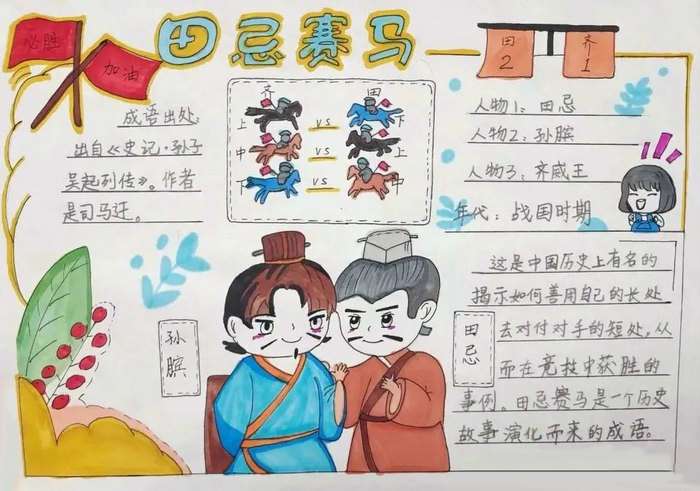 田忌赛马
必胜
加油
田
2
齐
1
成语出处:
出自《史记·孙子
吴起列传》。作者
是司马迁。
齐 田
上 VS 下
中 VS 上
下 VS 中
人物1: 田忌
人物2: 孙膑
人物3: 齐威王
年代: 战国时期
孙膑
田忌
这是中国历史上有名的
揭示如何善用自己的长处
去对付对手的短处,从
而在竞技中获胜的
事例。田忌赛马是一个历史
故事演化而来的成语。